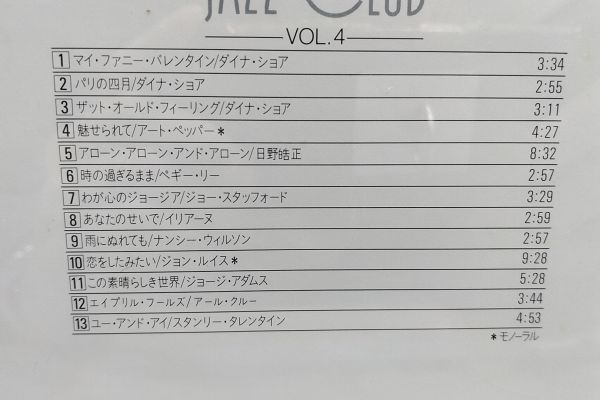 JAZZ CLUB
VOL.4
1 マイ・ファニー・バレンタイン/ダイナ・ショア 3:34
2 パリの四月/ダイナ・ショア 2:55
3 ザット・オールド・フィーリング/ダイナ・ショア 3:11
4 魅せられて/アート・ペッパー* 4:27
5 アローン・アローン・アンド・アローン/日野皓正 8:32
6 時の過ぎるまま/ペギー・リー 2:57
7 わが心のジョージア/ジョー・スタッフォード 3:29
8 あなたのせいで/イリアーヌ 2:59
9 雨にぬれても/ナンシー・ウィルソン 2:57
10 恋をしたみたい/ジョン・ルイス* 9:28
11 この素晴らしき世界/ジョージ・アダムス 5:28
12 エイプリル・フールズ/アール・クルー 3:44
13 ユー・アンド・アイ/スタンリー・タレンタイン 4:53
*モノーラル